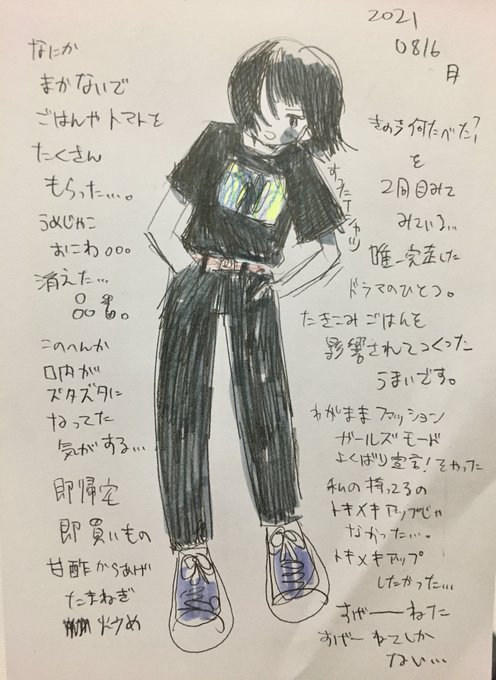 2021
0816
月
なにか
まかないで
ごはんやトマトを
たくさん
もらった…。
うめじゃこ
おにわ。。。
消えた…
このへんか
口内が
ズタズタに
なってた
気がする…
即帰宅
即買いもの
甘酢からあげ
たまねぎ
炒め
すったTシャツ
きのう何たべた?
を
2回目みて
みている…
唯一完走した
ドラマのひとつ。
たきこみごはんを
影響されてつくった
うまいです。
わがままファッション
ガールズモード
よくばり宣言!そやった
私の持ってるの
トキメキアップじゃ
なかった…。
トキメキアップ
したかった…
すげーーねた
すげーねてしか
ない…